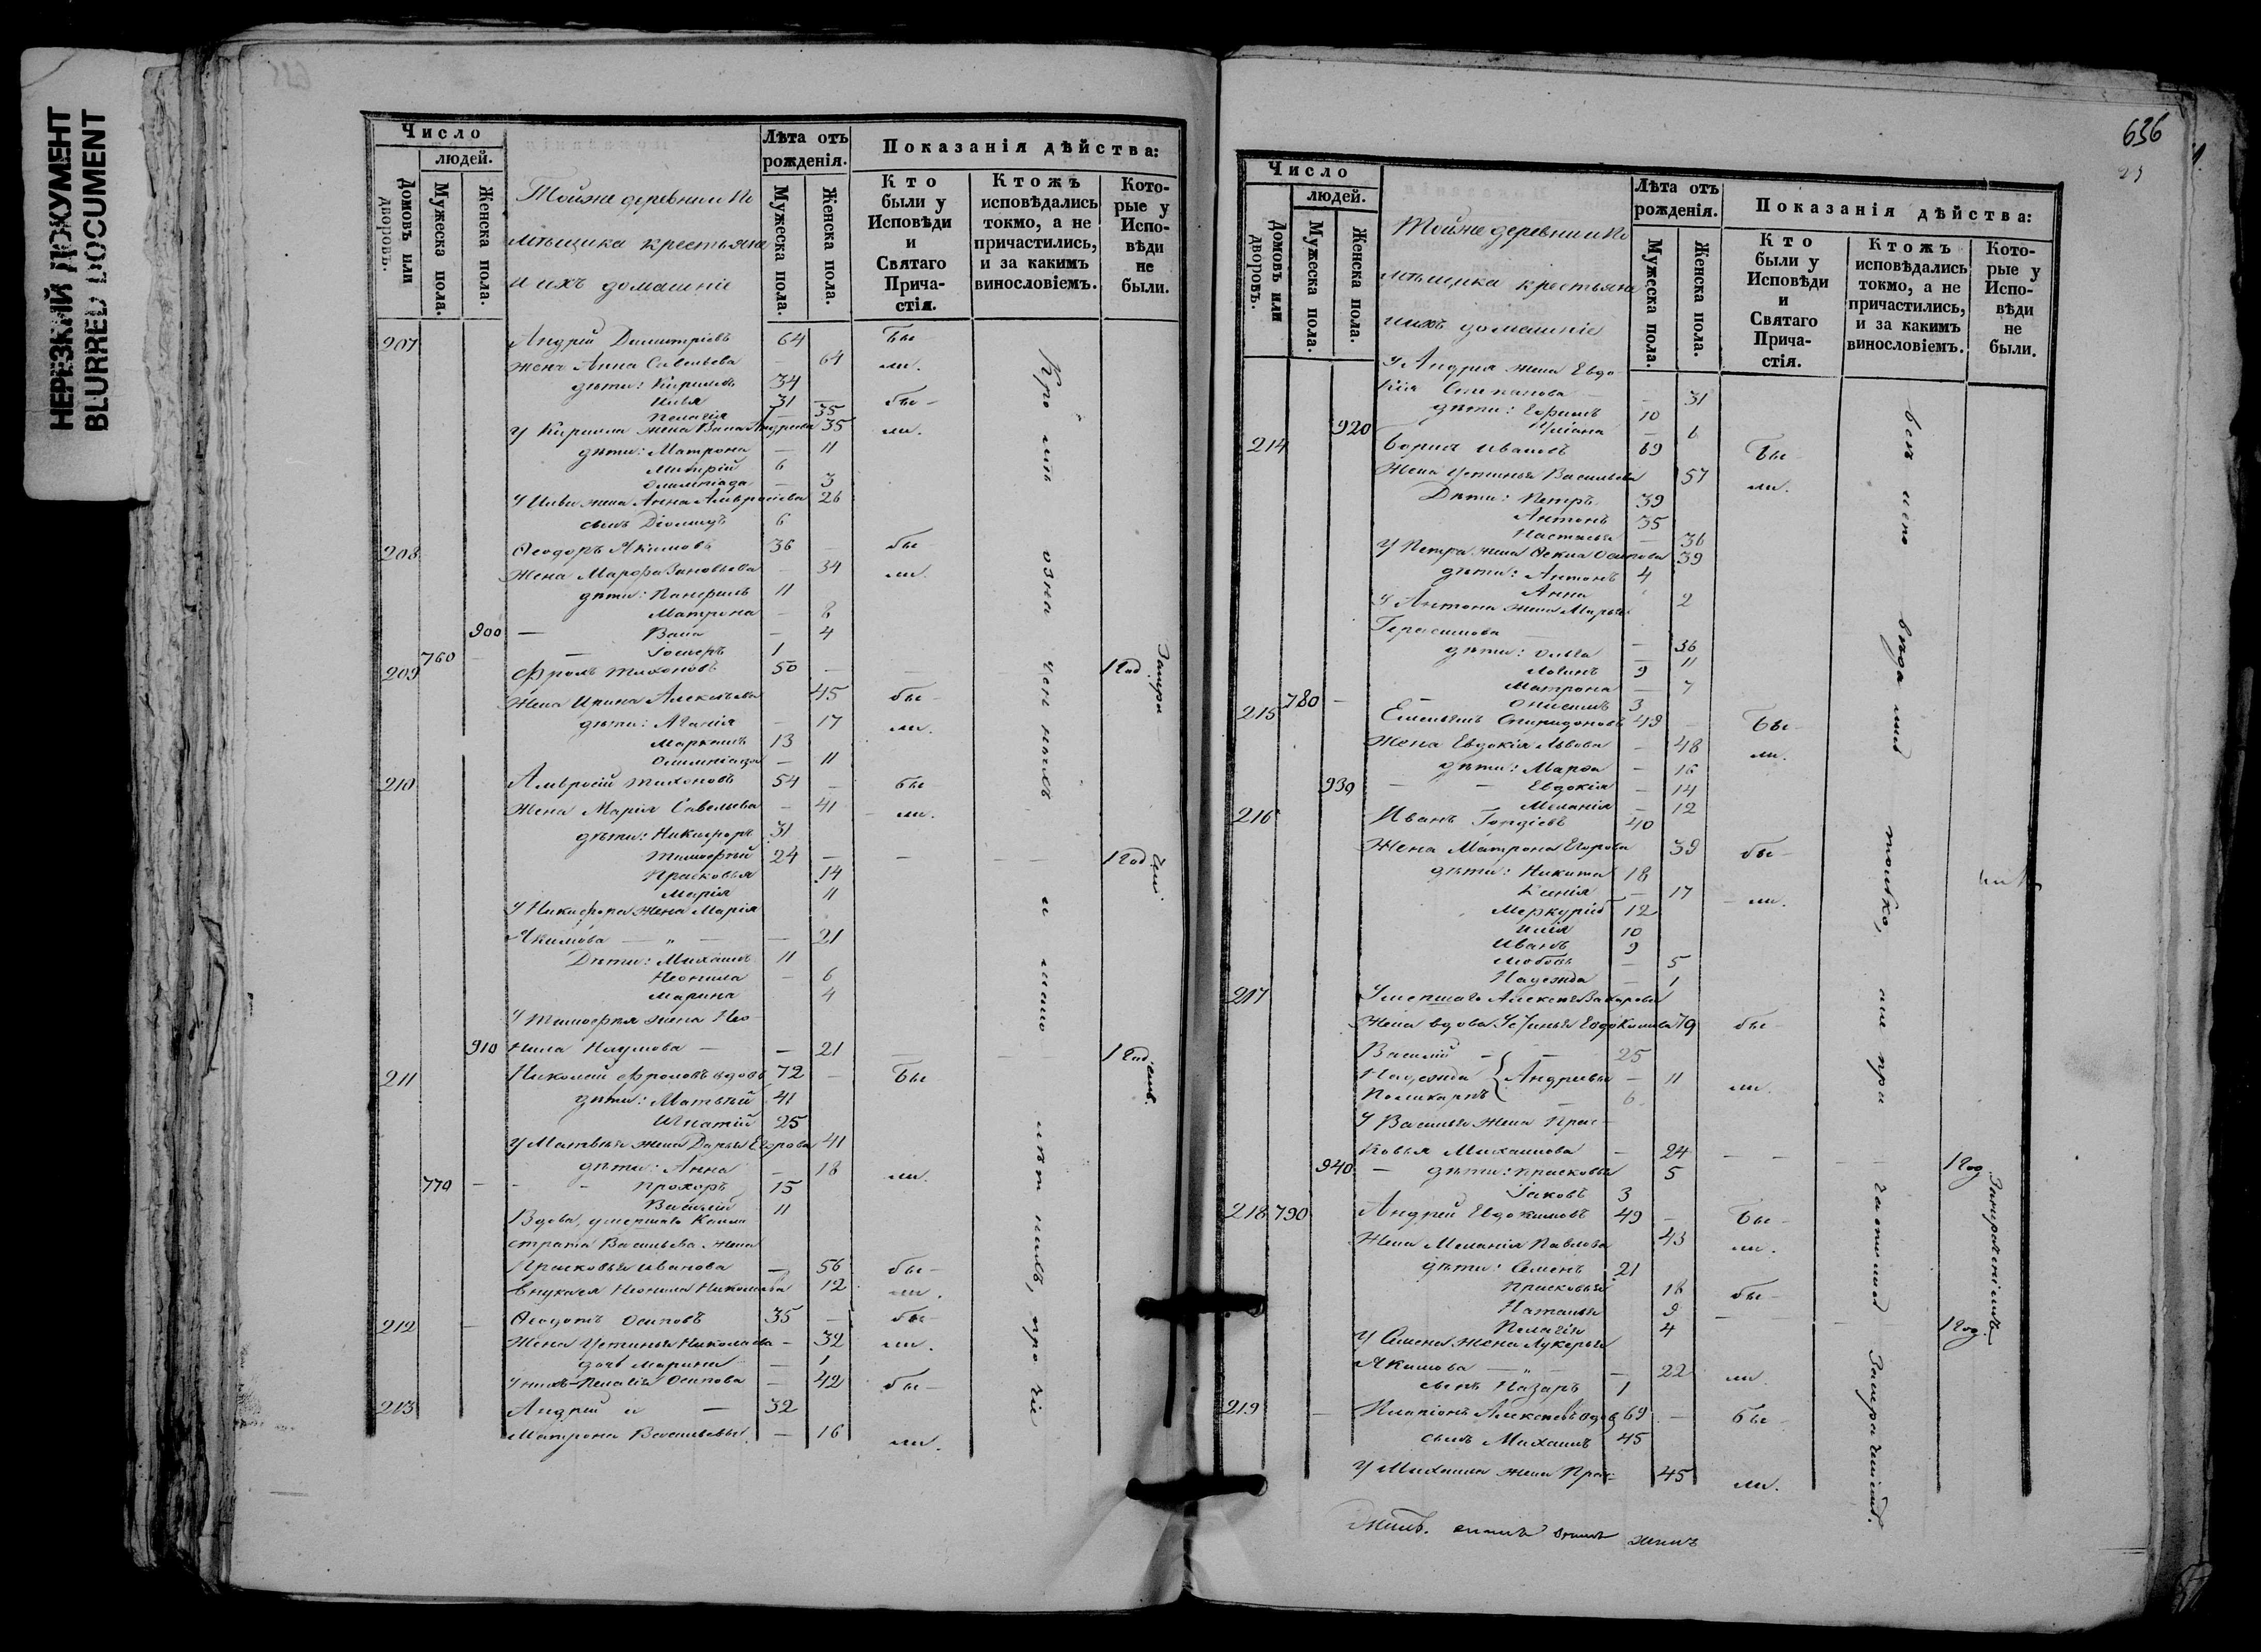 НЕРЕЗКИЙ ДОКУМЕНТ
BLURRED DOCUMENT
Число
людей.
Домовъ или дворовъ.
Мужеска пола.
Женска пола.
Тойже деревни по
мѣщика крестьяне
и ихъ домашніе
Лѣта отъ рожденія.
Мужеска пола.
Женска пола.
Показанія дѣйства:
Кто были у Исповѣди и Святаго Причастія.
Ктожъ исповѣдались токмо, а не причастились, и за какимъ винословіемъ.
Которые у Исповѣди не были.
207 Андрей Димитріевъ 64 бы
жена Анна Савельева — 64 ли.
дѣти: Кирилъ 34
Илья 31 — бы
Пелагія — 35
У Кирилла жена Васа Андреева 35 ли.
дѣти: Матрона — 11
Митрій 6
Олимпіада — 3
У Ильи жена Анна Амвросіева 26
сынъ Діомидъ 6
208 Ѳеодоръ Акимовъ 36 — бы
Жена Марфа Зиновьева — 34 ли.
дѣти: Панфилъ 11
Матрона — 8
900 — Васа — 4
760 — 1
209 Фролъ Тихоновъ 50 — — — 1 год
Жена Ирина Алексѣева 45 бы
дѣти: Агафія — 17 ли.
Маркелъ 13
Олимпіада — 11
210 Амвросій Тихоновъ 54 — бы
Жена Марія Савельева — 41 ли.
дѣти: Никифоръ 31
Тимофей 24 — — — 1 год
Прасковья 14
Марія 11
У Никифора жена Марія
Акимова — „ — — 21
Дѣти: Михаилъ 11
Неонила — 6
Марина 4
У Тимофея жена Нео
910 нила Наумова — — 21 — 1 год
211 Николай Фроловъ вдовъ 72 — бы
дѣти: Матвѣй 41
Игнатій 25
У Матвѣя жена Дарья Егорова 41
дѣти: Анна — 18 ли.
770 — Прохоръ 15
Василій 11
Вдова, умершаго Кали
страта Васильева жена
Прасковья Иванова — 56 бы
внука ея Неонила Николаева 12 ли.
212 Ѳеодотъ Осиповъ 35 — бы
Жена Устинья Николаева — 32 ли.
дочь Марина — 1
У нихъ Пелагія Осипова — 42 бы
213 Андрей и — 32
Матрона Васильевы — 16 ли.
Кро мѣ озна чен ныхъ и мало лѣт нихъ, про чіе
636
Число
людей.
Домовъ или дворовъ.
Мужеска пола.
Женска пола.
Тойже деревни по
мѣщика крестьяне
и ихъ домашніе
Лѣта отъ рожденія.
Мужеска пола.
Женска пола.
Показанія дѣйства:
Кто были у Исповѣди и Святаго Причастія.
Ктожъ исповѣдались токмо, а не причастились, и за какимъ винословіемъ.
Которые у Исповѣди не были.
У Андрея жена Евдо
кія Степанова — 31
дѣти: Ефимъ 10
920 Уліана — 6
214 Борисъ Ивановъ 69 бы
Жена Устинья Васильева 57 ли.
Дѣти: Петръ 39
Антонъ 35
Настасья — 36
У Петра жена Ѳекла Осипова 39
дѣти: Антонъ 4
Анна 2
У Антона жена Марья
Герасимова — 36
дѣти: Ольга — 11
Логинъ 9
Матрона — 7
780 — Онисимъ 3
215 Емельянъ Спиридоновъ 49 — бы
Жена Евдокія Львова — 48 ли.
дѣти: Марфа — 16
930 — — Евдокія — 14
Меланія — 12
216 Иванъ Гордіевъ 40
Жена Матрона Егорова 39 бы
дѣти: Никита 18
Ксенія — 17 ли.
Меркурій 12
Илія 10
Иванъ 9
Любовь — 5
Надежда — 1
217 Умершаго Алексѣя Захарова
Жена вдова Устинья Евдокимова 79 бы
Василій — 25
Надежда Андреевы — 11 ли.
Поликарпъ 6
У Василья жена Прас
ковья Михаилова — 24 — — — 1 год
940 — дѣти: Прасковья 5
Іаковъ 3
218 790 Андрей Евдокимовъ 49 — бы
Жена Меланія Павлова 43 ли.
дѣти: Семенъ 21
Прасковья 18 бы
Наталья 9
Пелагія 4 1 год.
У Семена жена Лукерья
Акимова — „ — 22 ли.
сынъ Назаръ 1
219 Иларіонъ Алексѣевъ вдов 69 — бы
сынъ Михаилъ 45
У Михаила жена Прас 45 ли.